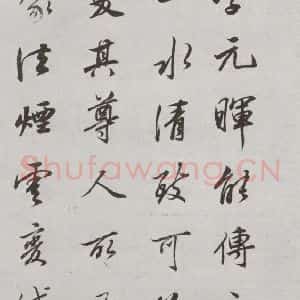 元暉能傳
水清致可
變其尊人所
家法煙雲變
Shufawang.CN